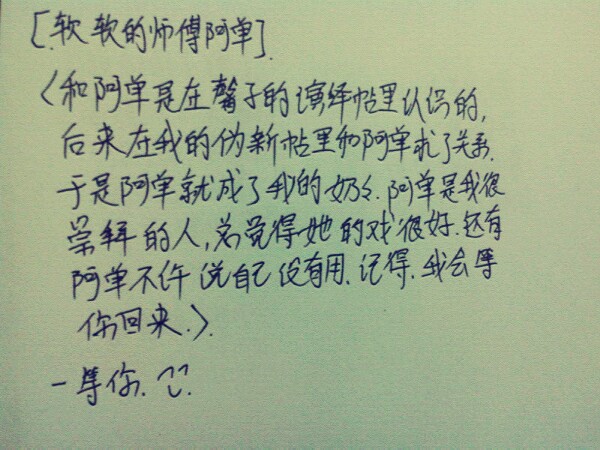 [软软的师傅阿单].
〈和阿单是在馨子的演绎帖里认识的,
后来在我的伪新帖里和阿单求了关系.
于是阿单就成了我的奶々.阿单是我很
崇拜的人,总觉得她的戏很好.还有
阿单不许说自己没有用.记得.我会等
你回来.〉.
一等你.